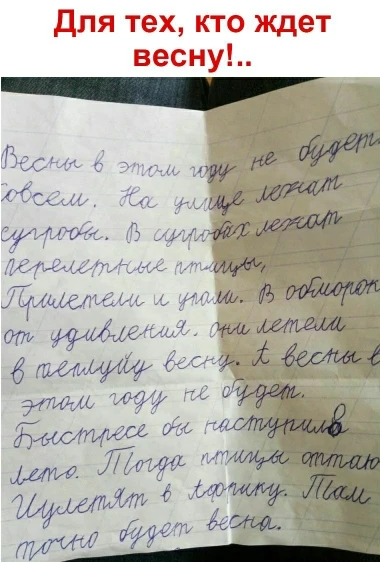 Для тех, кто ждет
весну!..
Весны в этом году не будет
совсем. На улице лежат
сугробы. В сугробах лежат
перелетные птицы,
Прилетели и упали. В обморок
от удивления. они летели
в теплуйу весну. А весны в
этом году не будет.
Быстресе бы наступило
лето. Тогда птицы оттаю
И улетят в Африку. Там
точно будет весна.